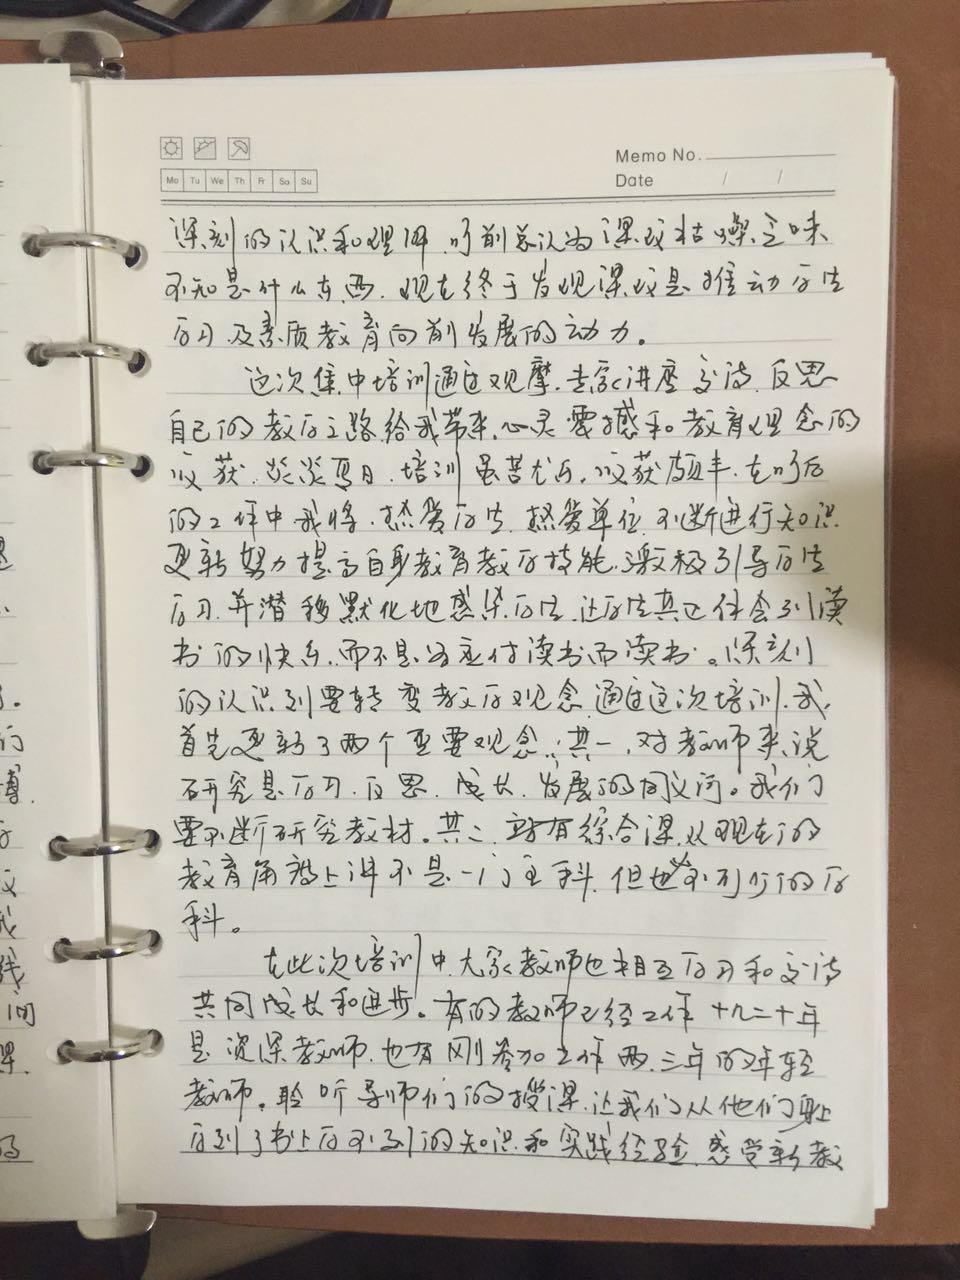 Memo No.
Date / /
Mo Tu We Th Fr Sa Su
深刻的认识和理解,以前总认为课改枯燥乏味
不知是什么东西,现在终于发现课改是推动学生
学习及素质教育向前发展的动力。
这次集中培训通过观摩,专家讲座交流,反思
自己的教学之路给我带来心灵震撼和教育理念的
收获,炎炎夏日,培训虽苦尤乐,收获颇丰,在以后
的工作中我将,热爱学生,热爱单位,不断进行知识
更新努力提高自身教育教学技能,激极引导学生
学习,并潜移默化地感染学生,让学生真正体会到读
书的快乐,而不是为应付读书而读书。深刻
的认识到要转变教学观念,通过这次培训,我
首先更新了两个重要观念:其一,对教师来说
研究是学习,反思,成长,发展的同义词。我们
要不断研究教材。其二,综合课,从现在的
教育角度上讲不是一门主科,但也不可少的学
科。
在此次培训中,大家教师也相互学习和交流
共同成长和进步。有的教师已经工作十九二十年
是资深教师,也有刚参加工作两,三年的年轻
教师。聆听导师们的授课,让我们从他们身上
学到了书上学不到的知识和实践经验,感受新教